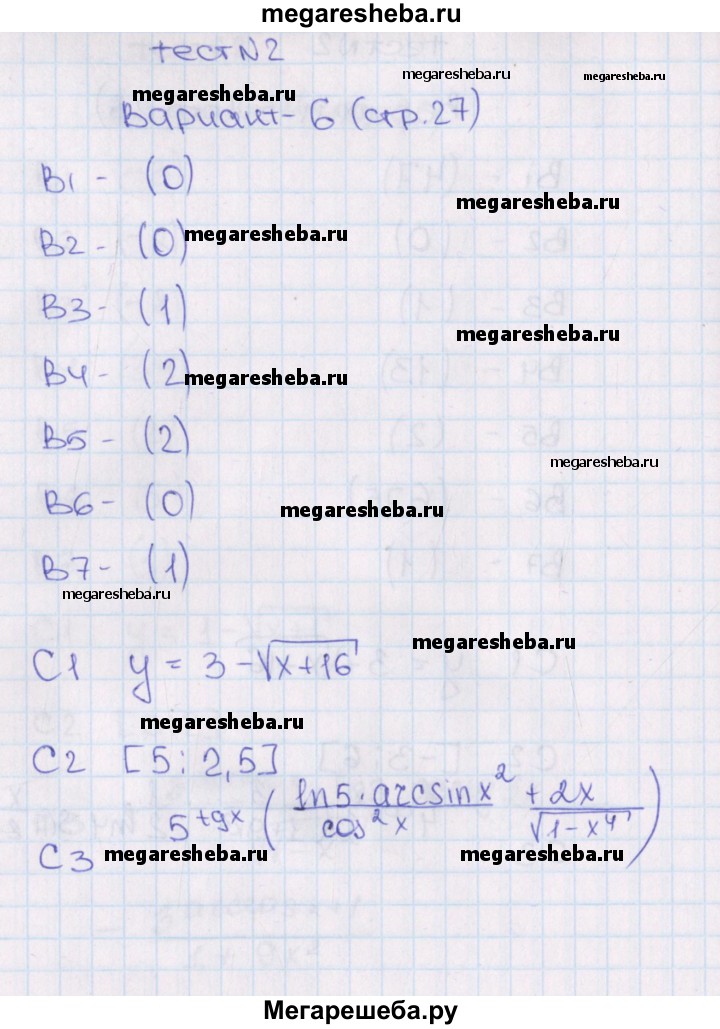 megaresheba.ru
тест N2
megaresheba.ru megaresheba.ru
megaresheba.ru
Вариант - 6 (стр. 27)
B1 - (0)
megaresheba.ru
B2 - (0) megaresheba.ru
B3 - (1)
megaresheba.ru
B4 - (2) megaresheba.ru
B5 - (2)
megaresheba.ru
B6 - (0) megaresheba.ru
B7 - (1)
megaresheba.ru
megaresheba.ru
C1 y = 3 - √(x+16)
megaresheba.ru
C2 [5; 2,5]
C3 5^(tgx) ( (ln5·arcsin x²)/(cos²x) + 2x/√(1-x⁴) )
megaresheba.ru megaresheba.ru
Мегарешеба.ру